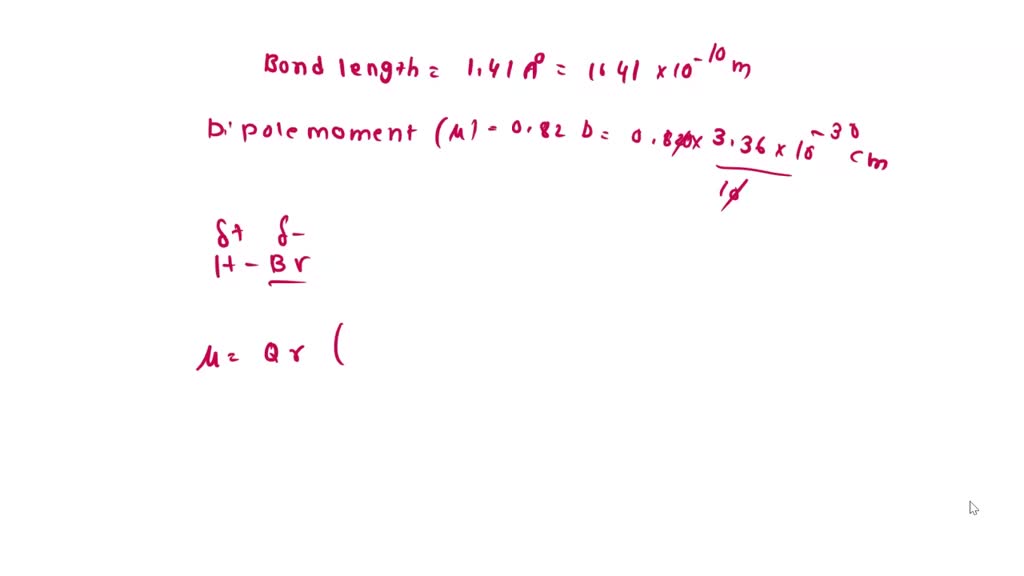 Bond length = 1.41 A° = 1641 × 10⁻¹⁰ m
Dipole moment (μ) = 0.82 D = 0.820 × 3.36 × 10⁻³⁰ cm
10
δ+ δ-
H - Br
μ = Q r (